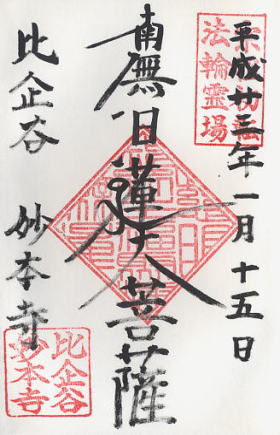 平成廿三年一月十五日
法輪霊場
南無日蓮大菩薩
比企谷　妙本寺
比企谷
妙本寺